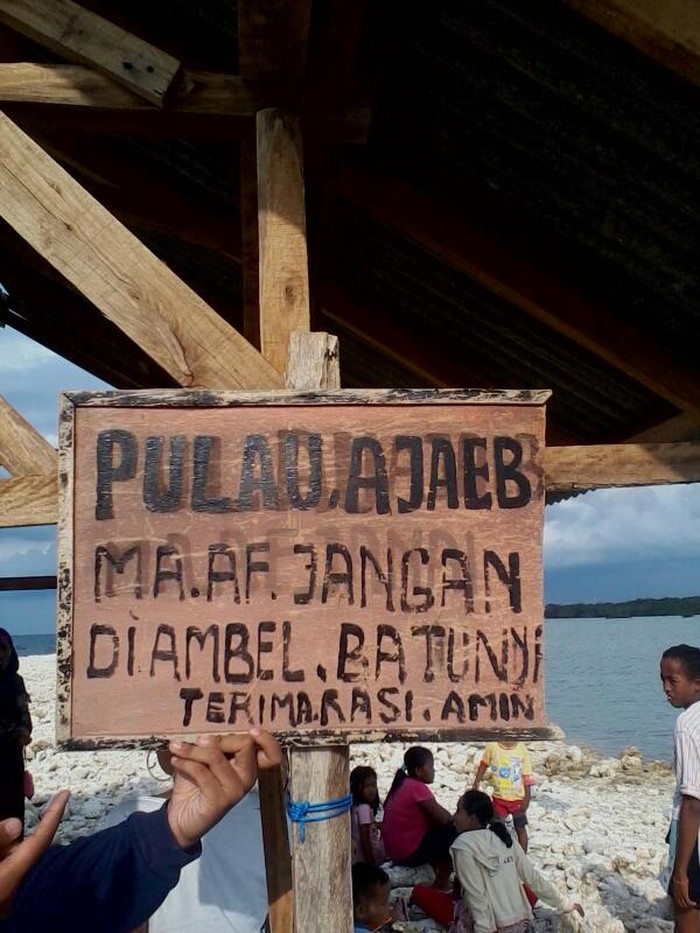 PULAU.AJAEB
MA.AF.JANGAN
DiAMBEL.BATUNYA
TERIMA.KASI.AMIN